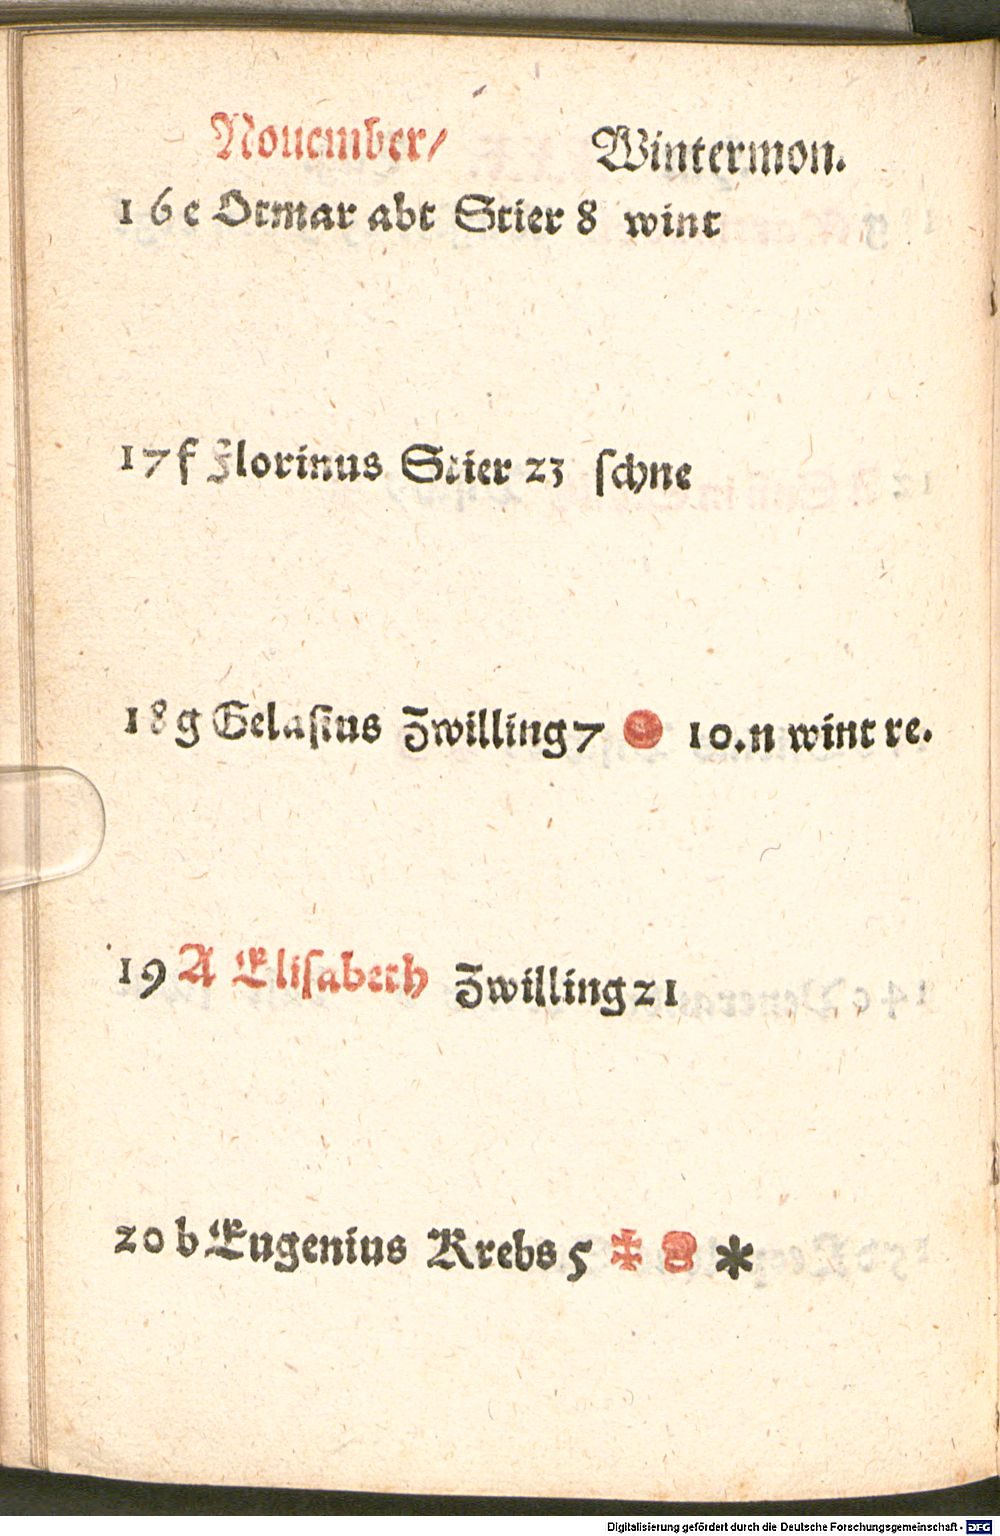 Nouember/ Wintermon.
16 e Otmar abt Stier 8 wint
17 f Florinus Stier 23 schne
18 g Gelasius Zwilling 7 10.n wint re.
19 A Elisabeth Zwilling 21
20 b Eugenius Krebs 5 *
Digitalisierung gefördert durch die Deutsche Forschungsgemeinschaft - DFG